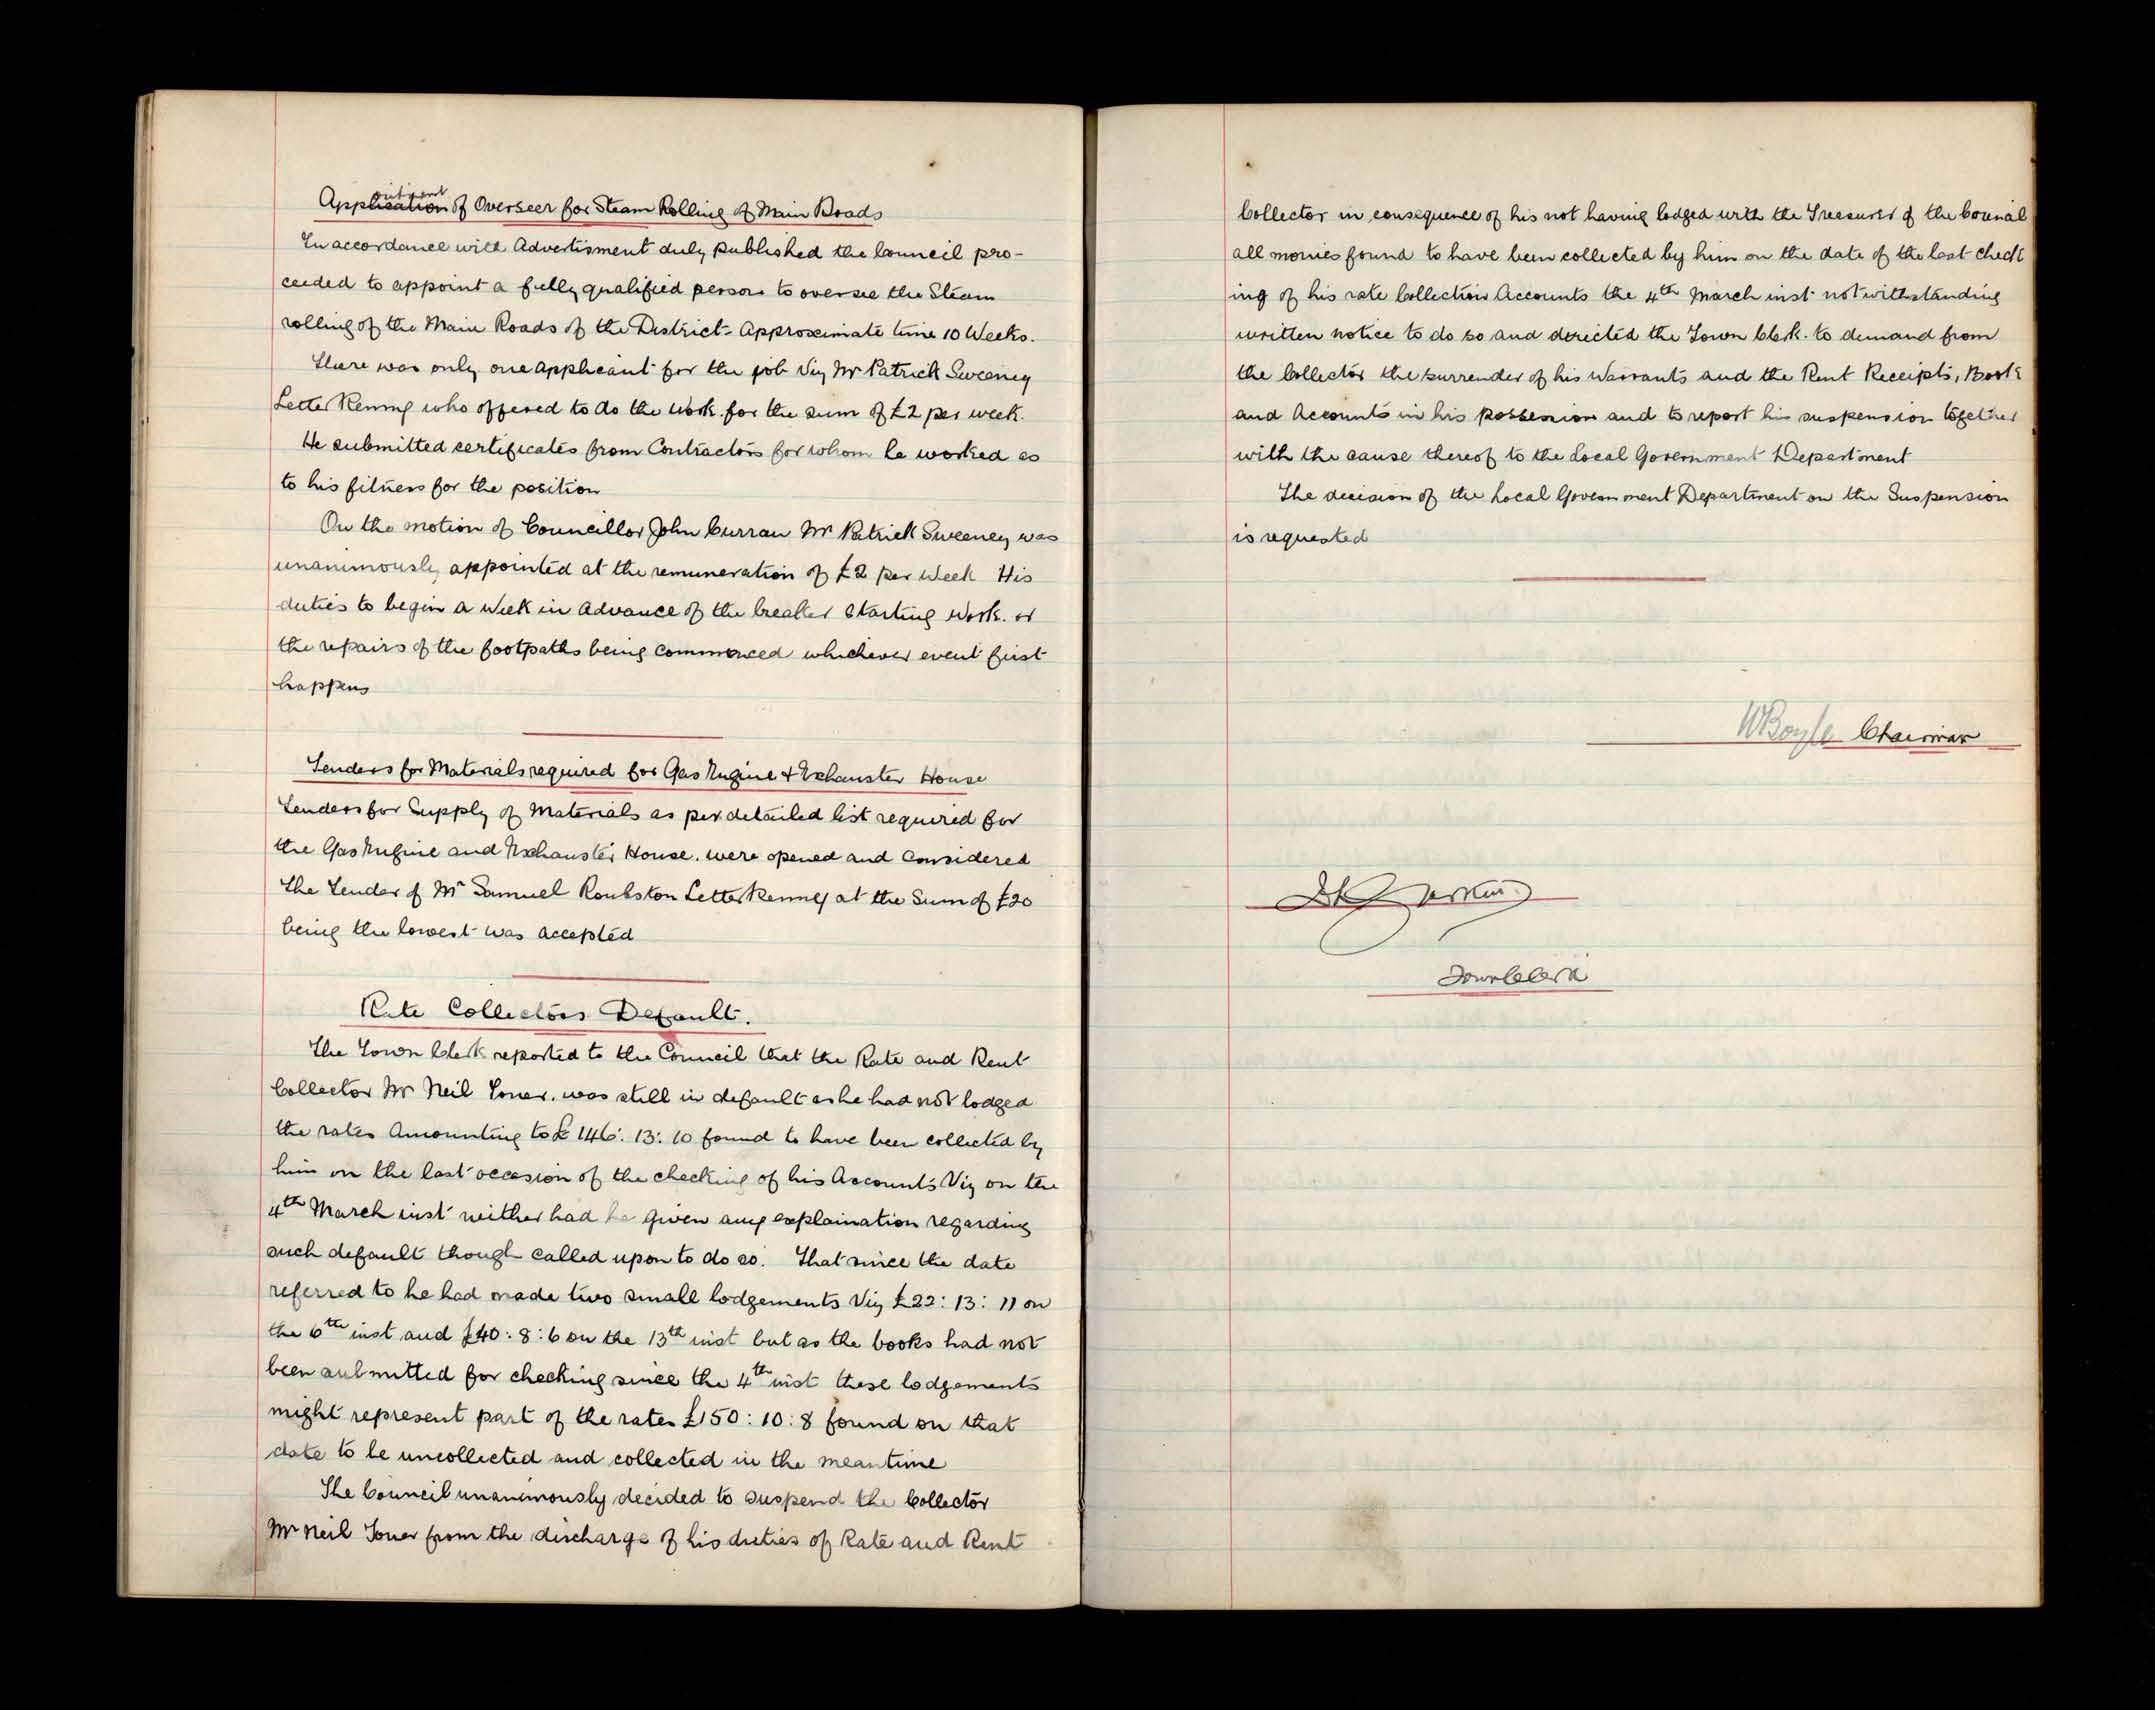 Appointment of Overseer for Steam Rolling of Main Roads
In accordance with Advertisment duly published the Council pro-
ceeded to appoint a fully qualified person to oversee the Steam
rolling of the Main Roads of the District - Approximate time 10 Weeks.
There was only one applicant for the job Viz Mr Patrick Sweeney
Letterkenny who offered to do the work for the sum of £2 per week.
He submitted certificates from Contractors for whom he worked as
to his fitness for the position
On the motion of Councillor John Curran Mr Patrick Sweeney was
unanimously appointed at the remuneration of £2 per week His
duties to begin a week in advance of the breaker starting work. or
the repairs of the footpaths being commenced whichever event first
happens
Tenders for Materials required for Gas Engine & Exhauster House
Tenders for Supply of Materials as per detailed list required for
the Gas Engine and Exhauster House. were opened and considered
The Tender of Mr Samuel Roulston Letterkenny at the Sum of £20
being the lowest was accepted
Rate Collectors Default.
The Town Clerk reported to the Council that the Rate and Rent
Collector Mr Neil Toner. was still in default as he had not lodged
the rates Amounting to £146: 13: 10 found to have been collected by
him on the last occasion of the checking of his Accounts Viz on the
4th March inst neither had he given any explaination regarding
such default though called upon to do so. That since the date
referred to he had made two small lodgements Viz £22: 13: 11 on
the 6th inst and £40: 8: 6 on the 13th inst but as the books had not
been submitted for checking since the 4th inst these lodgements
might represent part of the rates £150: 10: 8 found on that
date to be uncollected and collected in the meantime
The Council unanimously decided to suspend the Collector
Mr Neil Toner from the discharge of his duties of Rate and Rent
Collector in consequence of his not having lodged with the Treasurer of the Council
all monies found to have been collected by him on the date of the last check
ing of his rate Collection Accounts the 4th March inst notwithstanding
written notice to do so and directed the Town Clerk. to demand from
the Collector the surrender of his Warrants and the Rent Receipts, Book
and Accounts in his possession and to report his suspension together
with the cause thereof to the Local Government Department
The decision of the Local Government Department on the Suspension
is requested
W Boyle Chairman
Town Clerk